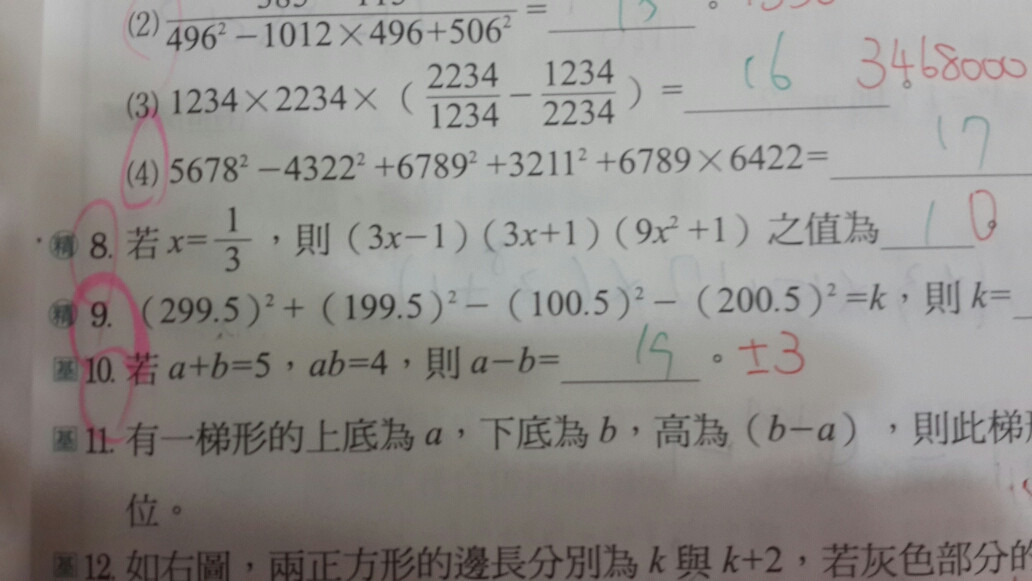 (2) 496² −1012×496+506² = 。
(3) 1234×2234×（2234/1234 − 1234/2234）= 16 。 3468000
(4) 5678² −4322² +6789² +3211² +6789×6422= 17
精 8. 若 x=1/3，則（3x−1）（3x+1）（9x² +1）之值為 1 0
精 9. （299.5）² +（199.5）² −（100.5）² −（200.5）² =k，則 k=
基 10. 若 a+b=5，ab=4，則 a−b= 。±3
基 11. 有一梯形的上底為 a，下底為 b，高為（b−a），則此梯
位。
基 12. 如右圖，兩正方形的邊長分別為 k 與 k+2，若灰色部分的